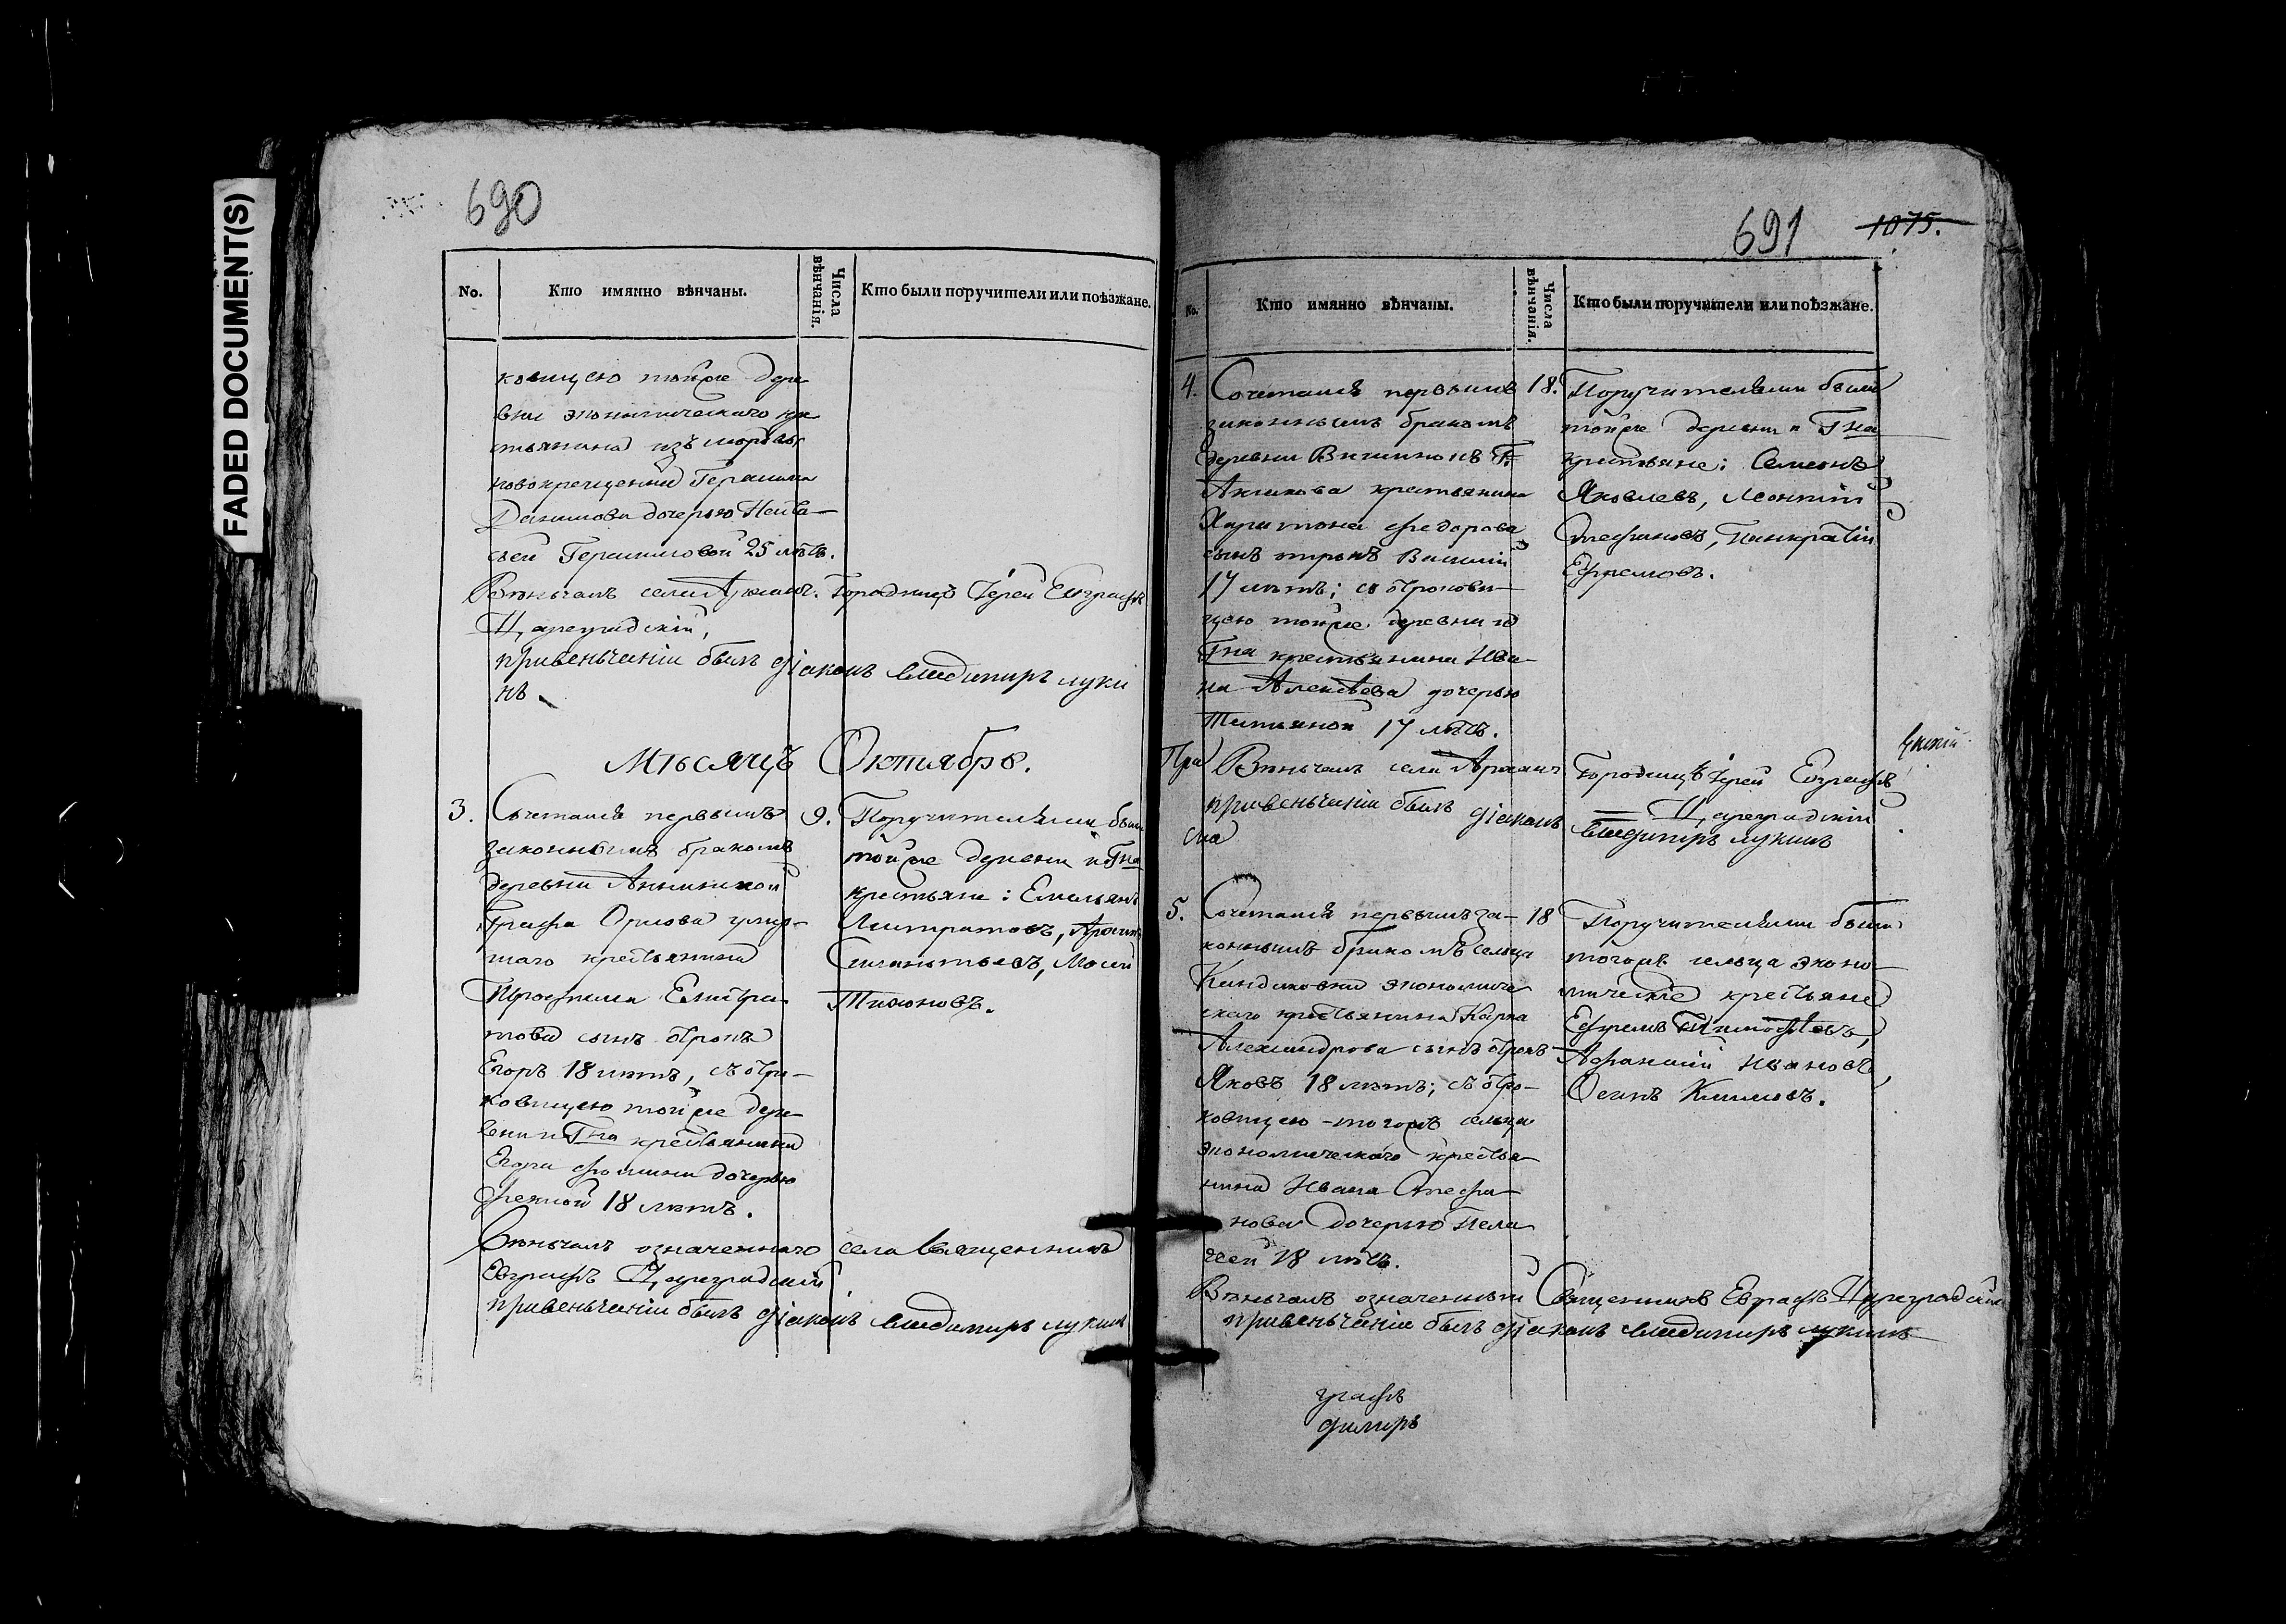 FADED DOCUMENT(S)
690
No.
Кто имянно вѣнчаны.
Числа вѣнчанія.
Кто были поручители или поѣзжане.
ковицею тойже дере
вни экономическаго кре
стьянина изъ мордвы
новокрещенны Герасима
Данилова дочерью Наста
сьей Герасимовой 25 лѣтъ.
Вѣнчалъ села Городищъ Іерей Евграфъ
Цареградскій,
привеньчаніи былъ діаконъ владимиръ луки
нъ
Мѣсяцъ Октябрь.
3.
Сочетался первымъ
законнымъ бракомъ
деревни Аниники
Графа Орлова умер
шаго крестьянина
Елистра
това сынъ отрокъ
Егоръ 18 лѣтъ, съ отро
ковицею тойже дере
вни и Гна крестьянина
Егора Фомина дочерью
Феклой 18 лѣтъ.
9.
Поручителями были
тойже деревни и Гна
крестьяне: Емельянъ
Силантьевъ, Моисей
Тихоновъ.
Вѣнчалъ означеннаго села Священникъ
Евграфъ Цареградскій
привеньчаніи былъ діаконъ владимиръ лукинъ
691
1075.
No.
Кто имянно вѣнчаны.
Числа вѣнчанія.
Кто были поручители или поѣзжане.
4.
Сочетался первымъ
законнымъ бракомъ
деревни
крестьянина
Харитона Федорова
сынъ отрокъ Василій
17 лѣтъ; съ отрокови
цею тойже деревни и
Гна крестьянина Ива
на Алексѣева дочерью
Татьяной 17 лѣтъ.
18.
Поручителями были
тойже деревни и Гна
крестьяне: Семенъ
Яковлевъ, Леонтій
Стефановъ, Панкратій
Ефремовъ.
При
Вѣнчалъ села Городищъ Іерей Евграфъ
Цареградскій
привеньчаніи былъ діаконъ
владимиръ лукинъ
5.
Сочетался первымъ за
коннымъ бракомъ сельца
Киндяковки экономиче
скаго крестьянина Карпа
Александрова сынъ отрокъ
Яковъ 18 лѣтъ; съ отро
ковицею тогожъ сельца
экономическаго крестья
нина Ивана Стефа
нова дочерью Пела
геей 18 лѣтъ.
18
Поручителями были
тогожъ сельца эконо
мическіе крестьяне
Ефремъ Тимофѣевъ,
Афанасій Ивановъ,
Осипъ Климовъ.
Вѣнчалъ означенный Священникъ Евграфъ Цареградскій
привеньчаніи былъ діаконъ владимиръ лукинъ
графъ
димиръ